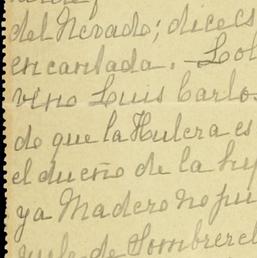 del Nevado; dice es
encantada. - Lol
vino Luis Carlos
do que la Hulera es
el dueño de la hy
ya Madero no pu
de Sombrere